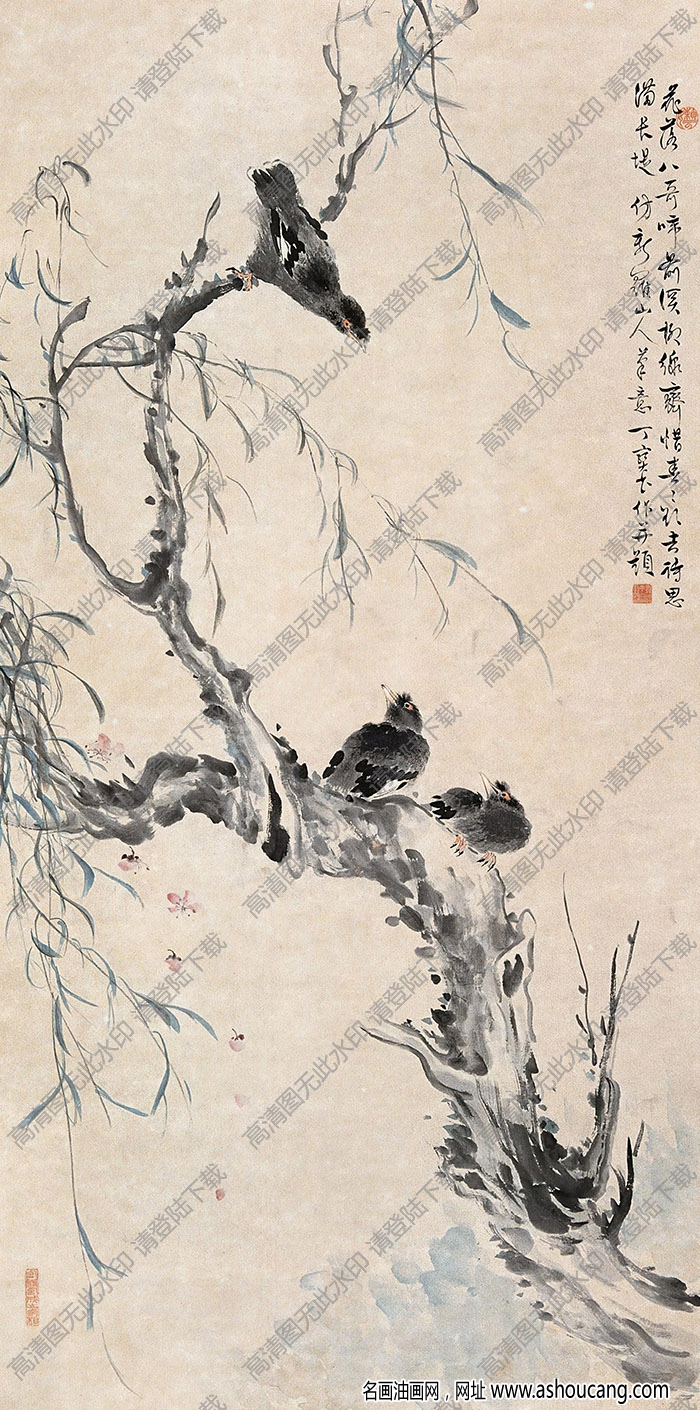 花落八哥啼前溪柳線齊惜春春欲去詩思
滿長堤 仿新羅山人筆意 丁寶書作并題
高清图无此水印 请登陆下载
名画油画网，网址 www.ashoucang.com